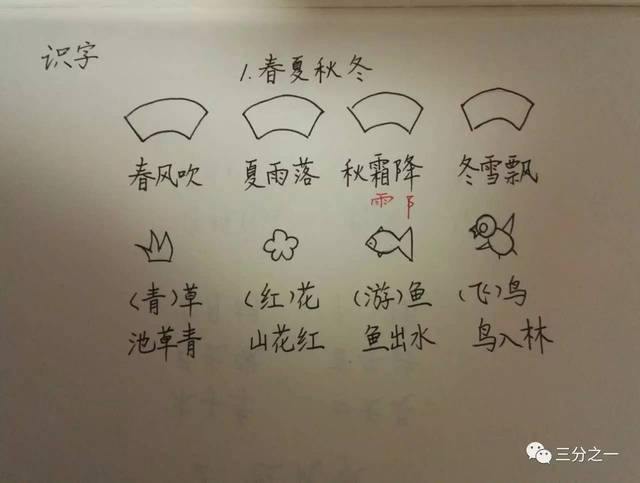 识字
1.春夏秋冬
春风吹 夏雨落 秋霜降 冬雪飘
雨 阝
(青)草 (红)花 (游)鱼 (飞)鸟
池草青 山花红 鱼出水 鸟入林
三分之一